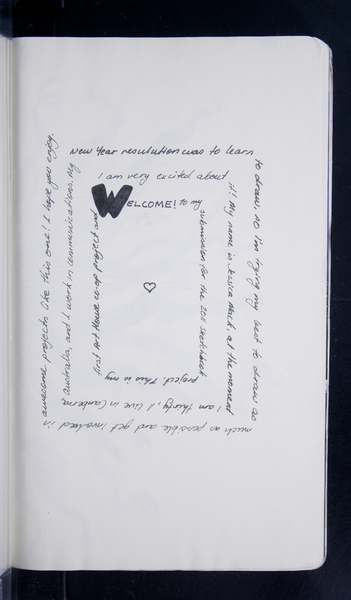 WELCOME! to my
submission for the 2011 sketchbook
project. This is my
first Art House co-op project and
I am very excited about
it! My name is Jessica at the moment
I am thirty, I live in Canberra,
Australia, and I work in communications. My
New Year resulution was to learn
to draw so I'm trying my best to draw as
much as possible and get involved in
awesome projects like this one! I hope you enjoy.